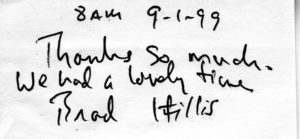 8AM 9-1-99
Thanks so much.
We had a lovely time
Brad Hillis